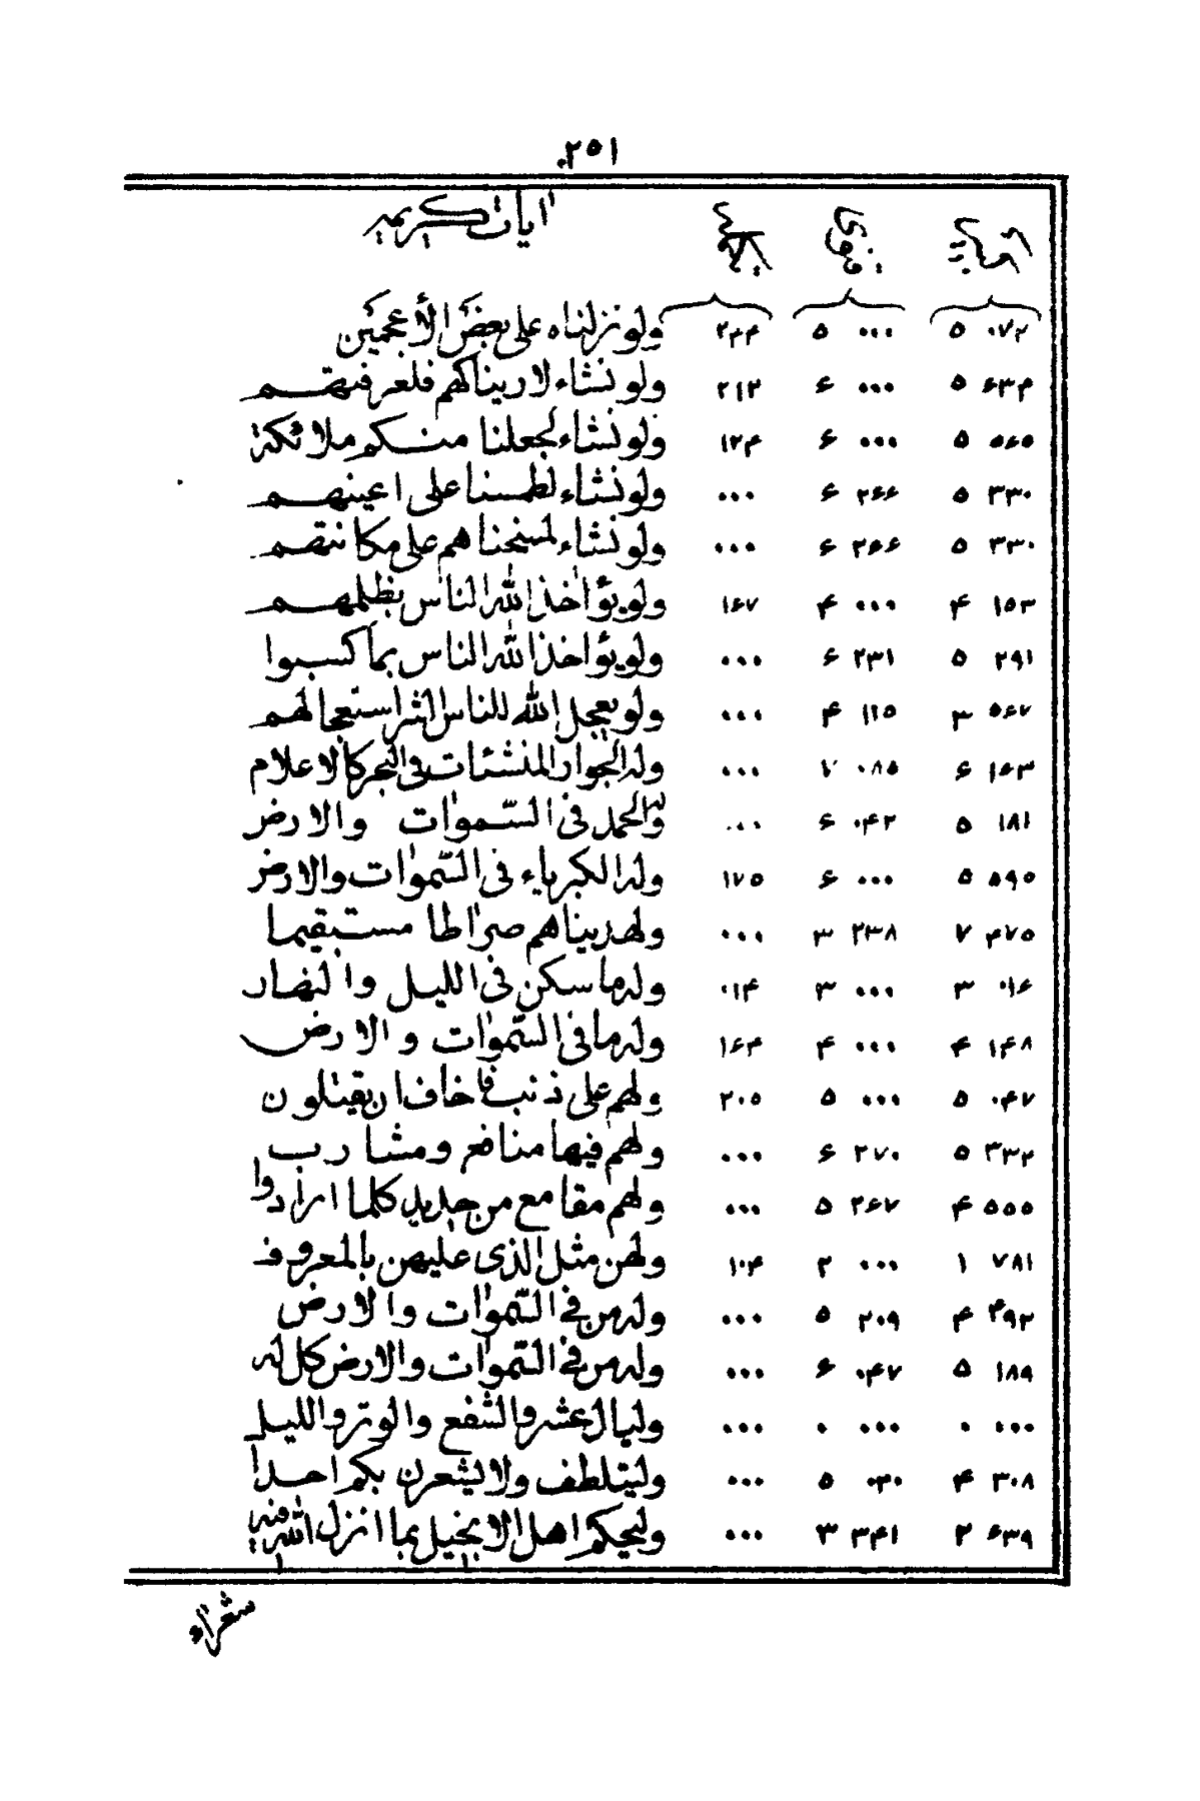 ٢٥١
آیات کریمه
٥ ٠٧٢ ٥ ٠٠٠ ٢٣۴ ولو نزلناه علی بعض الأعجمین
٥ ۶٣۴ ۶ ٠٠٠ ٢١٢ ولو نشاء لاریناکهم فلعرفتهم
٥ ٥۶٥ ۶ ٠٠٠ ١٢۴ ولو نشاء لجعلنا منکم ملائکة
٥ ٣٣٠ ۶ ٢۶۶ ٠٠٠ ولو نشاء لطمسنا علی اعینهم
٥ ٣٣٠ ۶ ٢۶۶ ٠٠٠ ولو نشاء لمسخناهم علی مکانتهم
۴ ١٥٣ ۴ ٠٠٠ ١۶٧ ولو یؤاخذ الله الناس بظلمهم
٥ ٢٩١ ۶ ٢٣١ ٠٠٠ ولو یؤاخذ الله الناس بما کسبوا
٣ ٥۶٧ ۴ ١١٥ ٠٠٠ ولو یعجل الله للناس الشر استعجالهم
۶ ١٥٣ ٧ ٠٨٥ ٠٠٠ وله الجوار المنشئات فی البحر کالاعلام
٥ ١٨١ ۶ ٠۴٢ ٠٠٠ وله الحمد فی السّموات والارض
٥ ٥٩٥ ۶ ٠٠٠ ١٧٥ وله الکبریاء فی السّموات والارض
٧ ۴٧٥ ٣ ٢٣٨ ٠٠٠ ولهدیناهم صراطا مستقیما
٣ ٠١۶ ٣ ٠٠٠ ٠١۴ وله ما سکن فی اللیل والنهار
۴ ١۴٨ ۴ ٠٠٠ ١۶۴ وله ما فی السّموات والارض
٥ ٠۴٧ ٥ ٠٠٠ ٢٠٥ ولهم علی ذنب فاخاف ان یقتلون
٥ ٣٣٢ ۶ ٢٧٠ ٠٠٠ ولهم فیها منافع ومشارب
۴ ٥٥٥ ٥ ٢۶٧ ٠٠٠ ولهم مقامع من حدید کلما ارادوا
١ ٧٨١ ٢ ٠٠٠ ١٠۴ ولهن مثل الذی علیهن بالمعروف
۴ ۴٩٢ ٥ ٢٠٩ ٠٠٠ وله من فی السّموات والارض
٥ ١٨٩ ۶ ٠۴٧ ٠٠٠ وله من فی السّموات والارض کل له
٠ ٠٠٠ ٠ ٠٠٠ ٠٠٠ ولیال عشر والشفع والوتر واللیل
۴ ٣٠٨ ٥ ٠٣٠ ٠٠٠ ولیتلطف ولا یشعرن بکم احدا
٢ ۶٣٩ ٣ ٣۴١ ٠٠٠ ولیحکم اهل الانجیل بما انزل الله فیه
شعراء